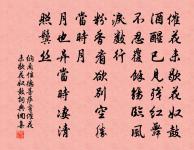 催花未歇花奴鼓
酒醒已見殘紅舞
不忍覆餘觴臨風
淚數行
粉香看欲別空賸
當時月
月也異當時淒清
照鬢絲
納蘭性德菩薩蠻催花
未歇花奴鼓詞典網書